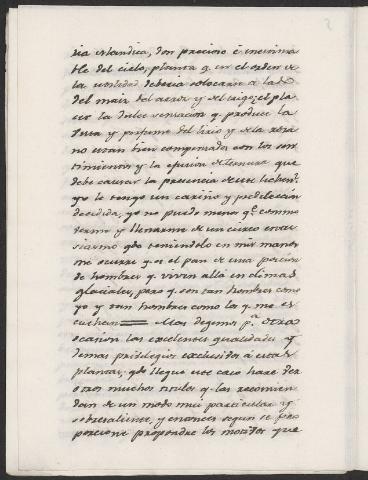 ria islandica, don precioso é inestima
ble del cielo, planta q. en el orden de
la utilidad deberia colocarse a lado
del maiz del arroz y del trigo; el pla
cer la dulce sensacion q. produce la
vista y perfume del lirio y de la rosa
no estan bien compensados con los sen
timientos y la efusion de ternura que
debe causar la presencia de este lichen.
yo le tengo un cariño y predileccion
decidida, yo no puedo menos q.e conmo
verme y llenarme de un cierto entu
siasmo q.do teniendolo en mis manos
me ocurre q. es el pan de una porcion
de hombres q. viven allá en climas
glaciales, pero q. son tan hombres como
yo y tan hombres como los q. me es
cuchan == Mas dejemos p.a otra
ocasion las excelentes qualidades y
demas privilegios exclusivos á estas
plantas; q.do llegue este caso haré ver
otros muchos titulos q. las recomien
dan de un modo mui particular y
sobresaliente, y entonces segun se pro
porcione propondré los motivos que